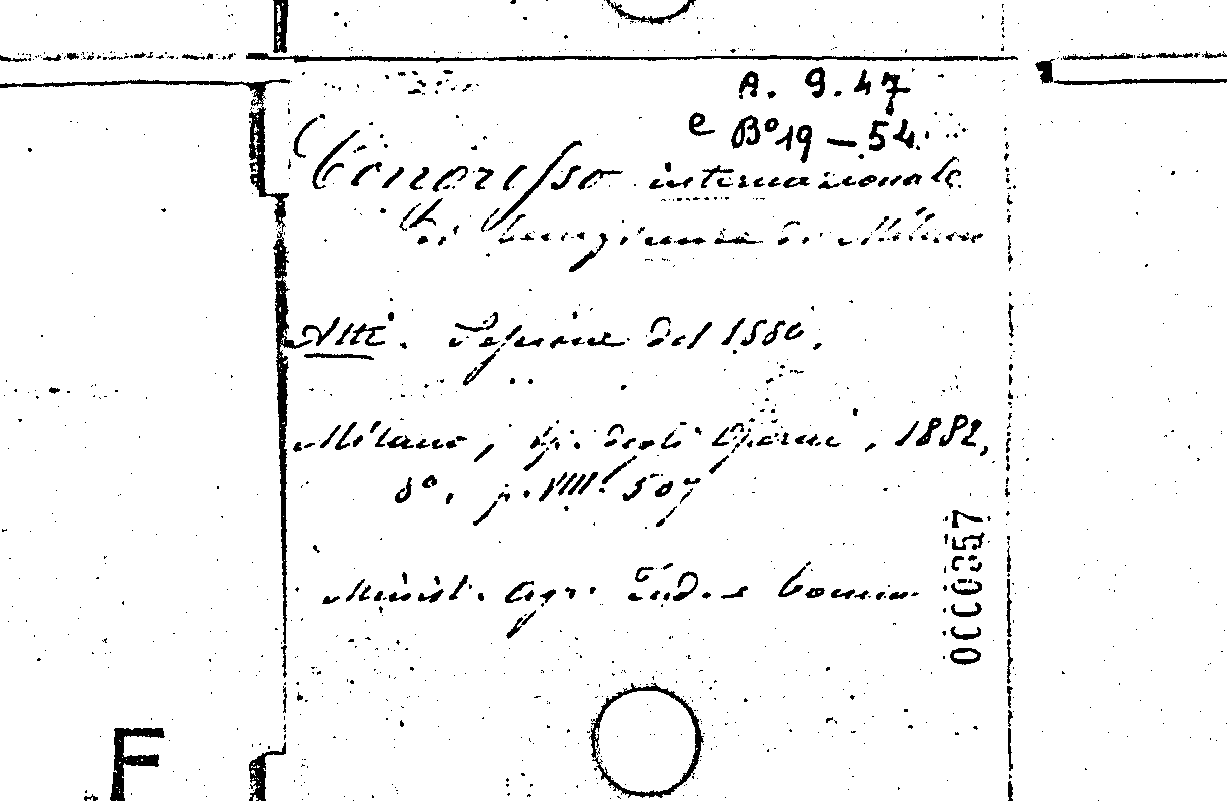 A. 9.47
e Bº 19 – 54.
Congresso internazionale
di beneficenza di Milano
Atti. Sessione del 1880.
Milano, tip. degli Operai, 1882,
8º. p. VIII. 507
Minist. Agr. Ind. e Comm.
0000357
F